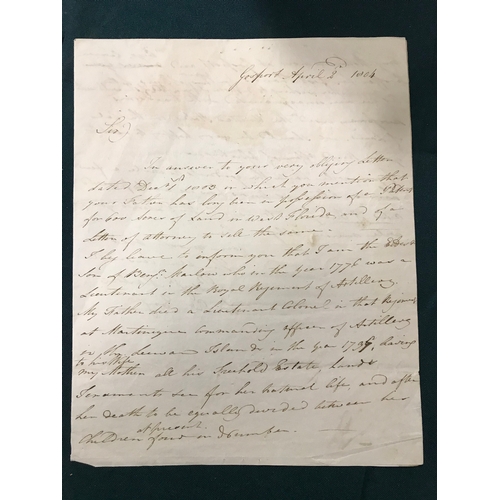 Gosport April 2d 1804
Sir,
In answer to your very obliging Letter
dated Decr 1803 in which you mention that
your Father has long been in possession of a
for 600 Acres of Land in West Florida and of a
Letter of attorney to sell the same.
I beg leave to inform you that I am the Eldest
Son of Benjn Marlow who in the year 1776 was a
Lieutenant in the Royal Regiment of Artillery.
My Father died a Lieutenant Colonel in that Regiment
at Martinique Commanding officer of Artillery
on Leeward Islands in the year having
to his Wife
my Mother all his Freehold Estate, Lands
Tenements &c for her natural life and after
her death to be equally divided between her
at present
Children four in number.